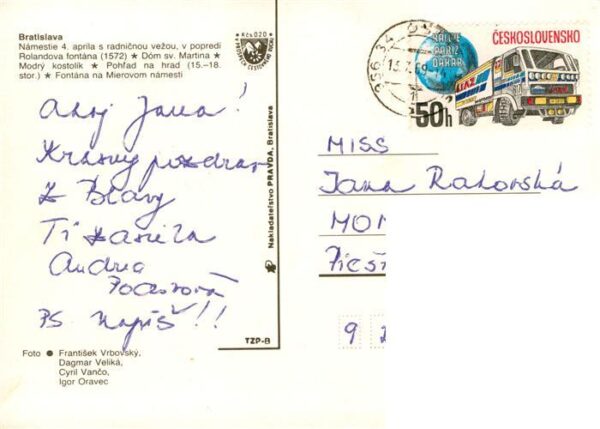 Bratislava
Námestie 4. apríla s radničnou vežou, v popredí
Rolandova fontána (1572) ★ Dóm sv. Martina ★
Modrý kostolík ★ Pohľad na hrad (15.–18.
stor.) ★ Fontána na Mierovom námestí
Kčs 0,20
Ahoj Jana!
Krásny pozdrav
z Blavy
Ti zasiela
Andrea
PS. Napíš!!
Foto ● František Vrbovský,
Dagmar Veliká,
Cyril Vančo,
Igor Oravec
Nakladateľstvo PRAVDA, Bratislava
TZP-B
956 34
RALLYE
PARIZ
DAKAR
ČESKOSLOVENSKO
LIAZ
50h
MISS
Jana Rakovská
9 2